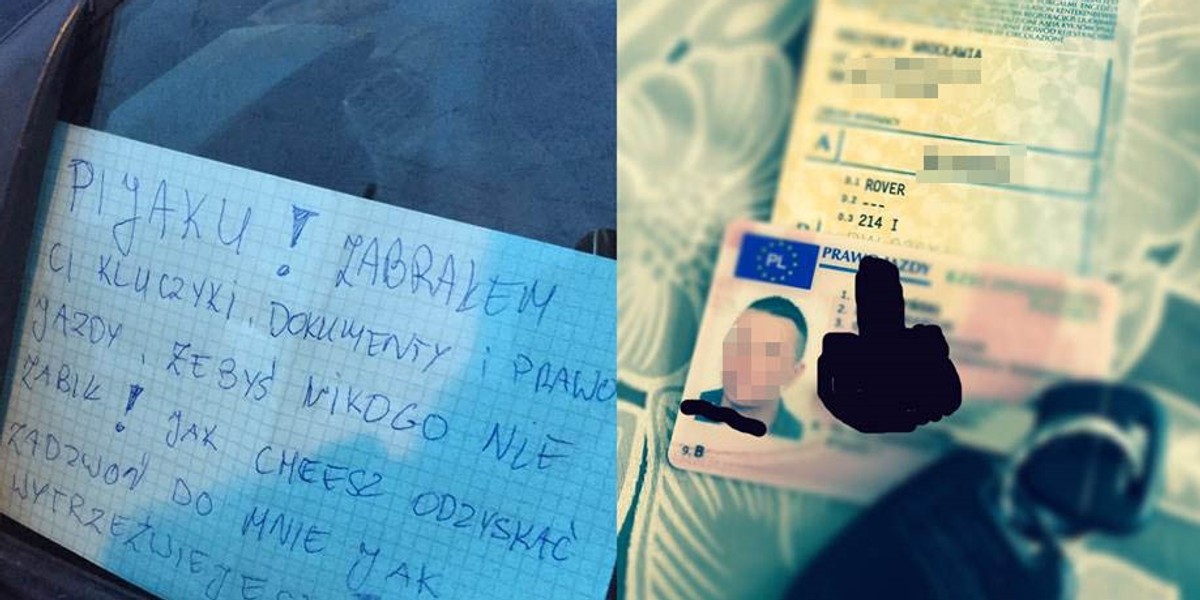 PIJAKU ! ZABRAŁEM
CI KLUCZYKI, DOKUMENTY i PRAWO
JAZDY, ŻEBYŚ NIKOGO NIE
ZABIŁ ! JAK CHCESZ ODZYSKAĆ
ZADZWOŃ DO MNIE JAK
WYTRZEŹWIEJESZ
WROCŁAWIA
A
D.1 ROVER
D.2 ---
D.3 214 I
PL
PRAWO JAZDY
1.
2.
3.
9. B